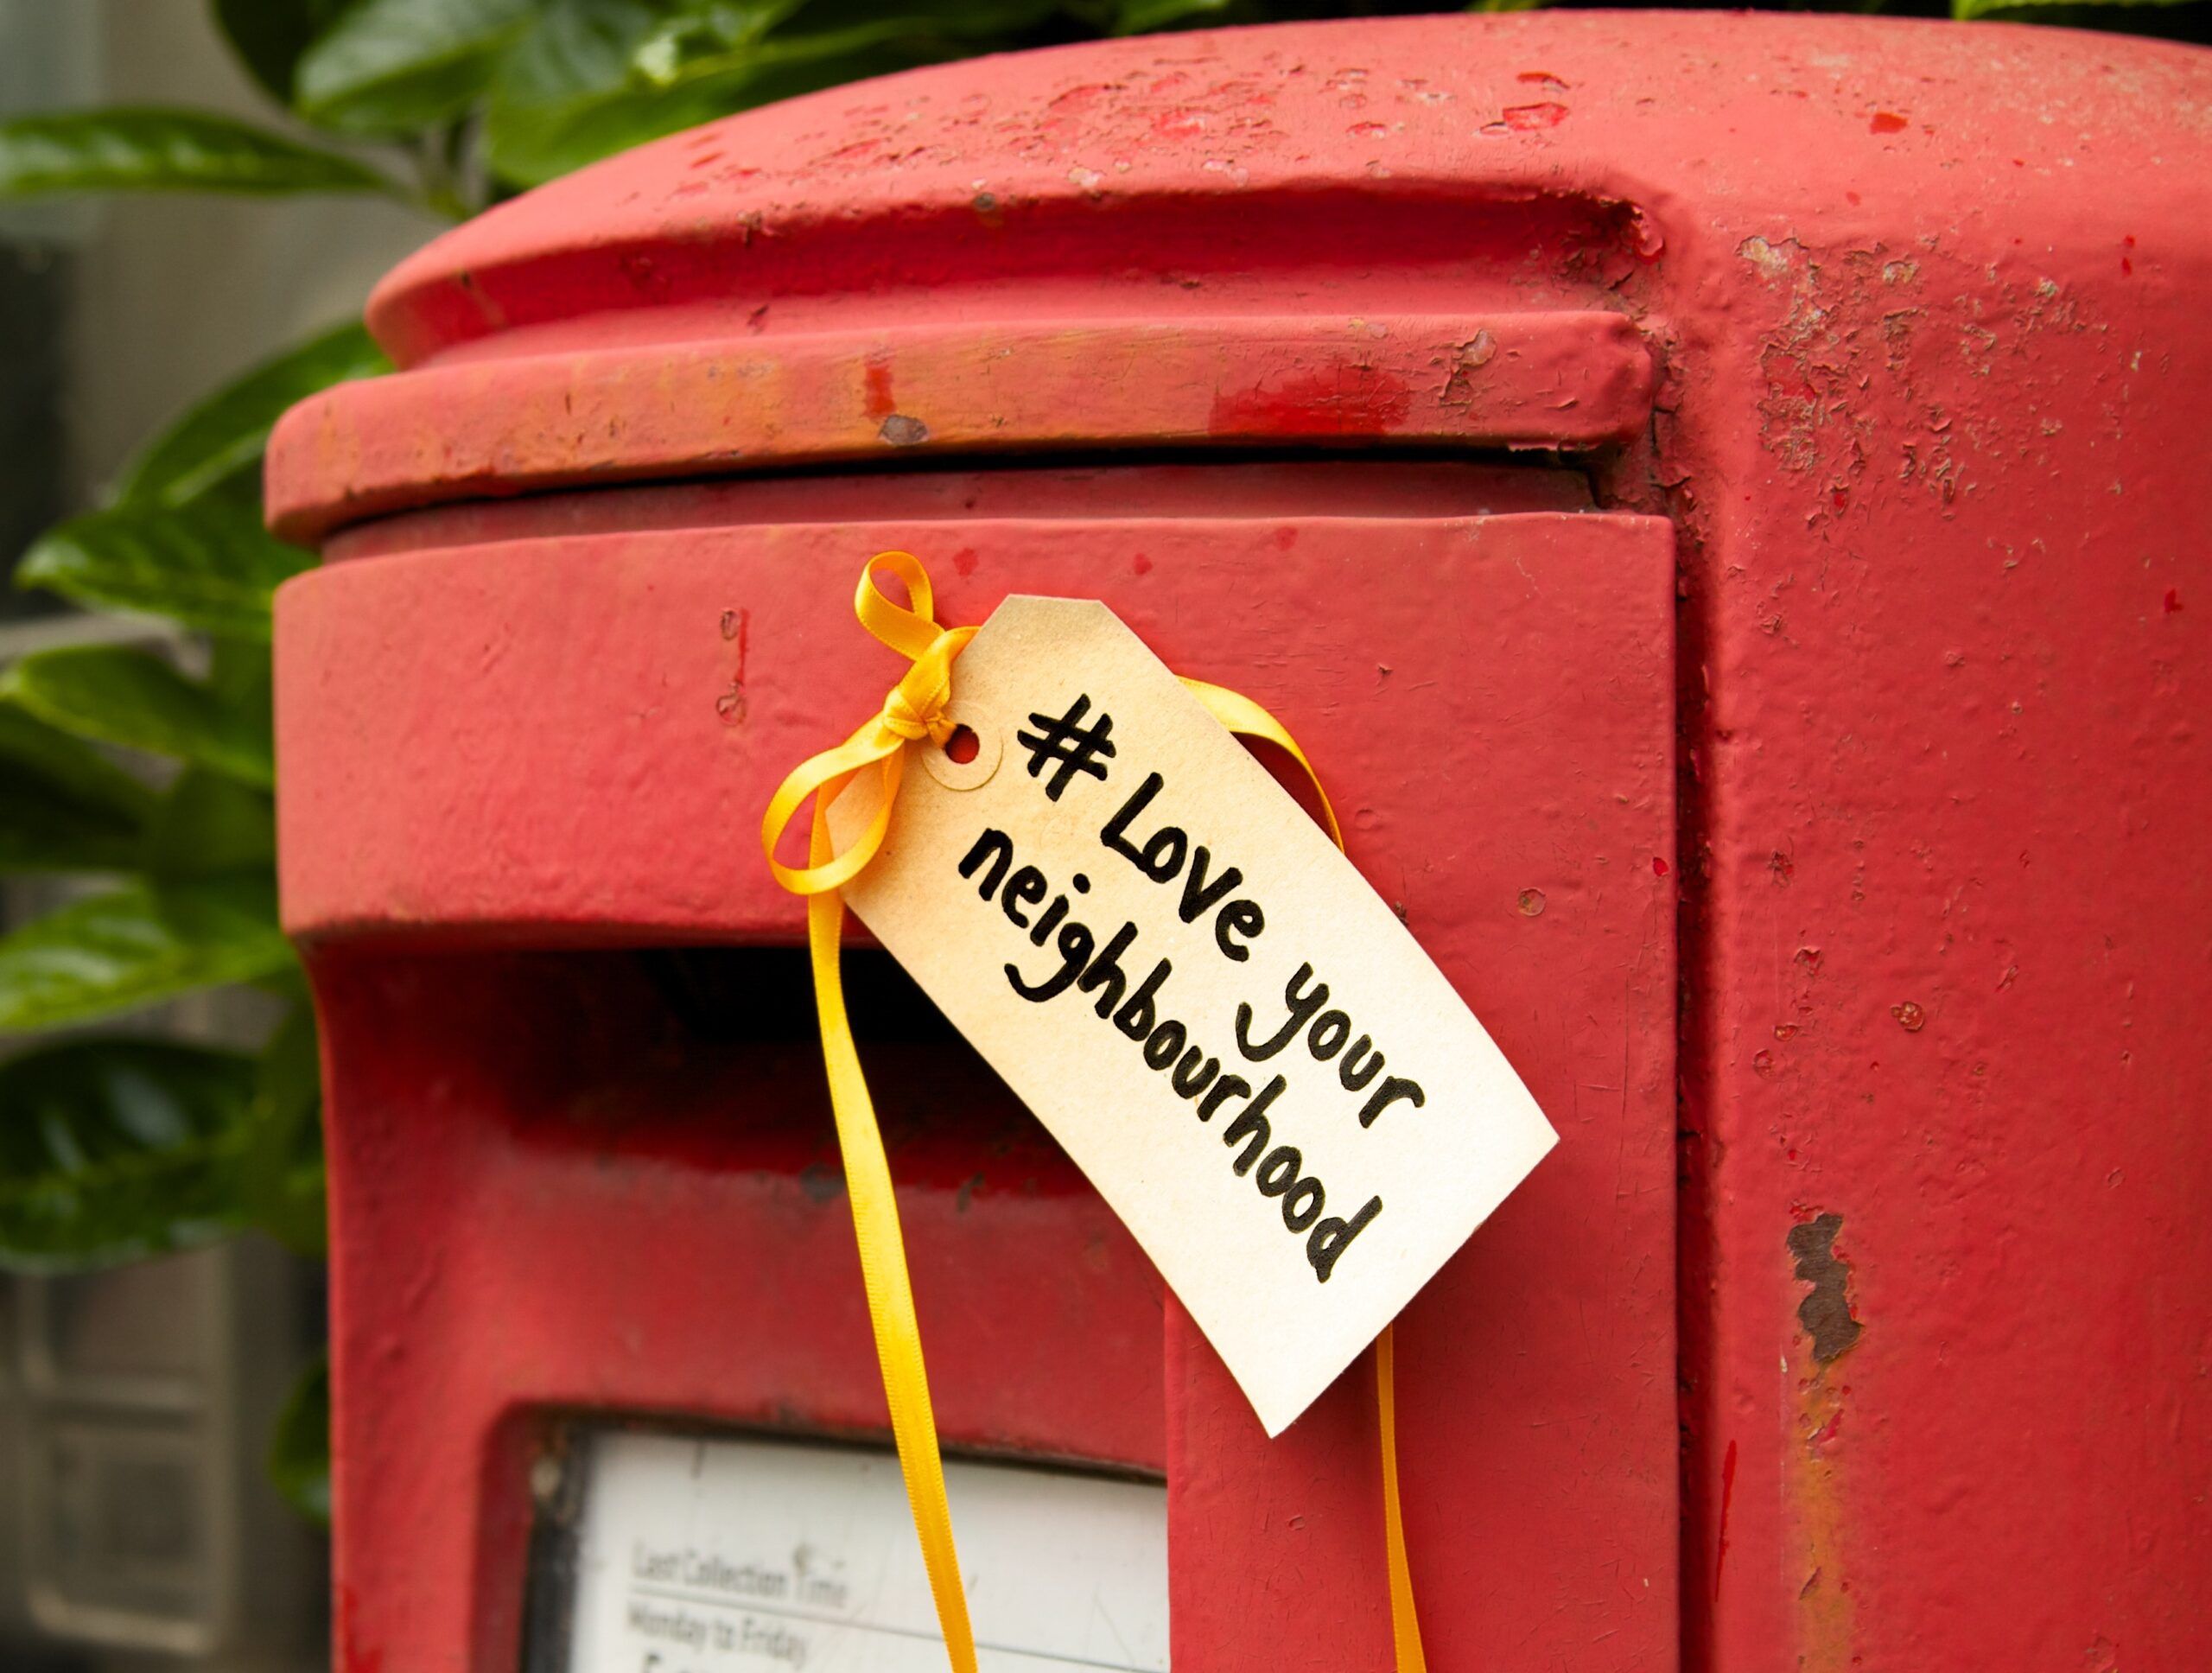 # Love your
neighbourhood
Last Collection Time
Monday to Friday